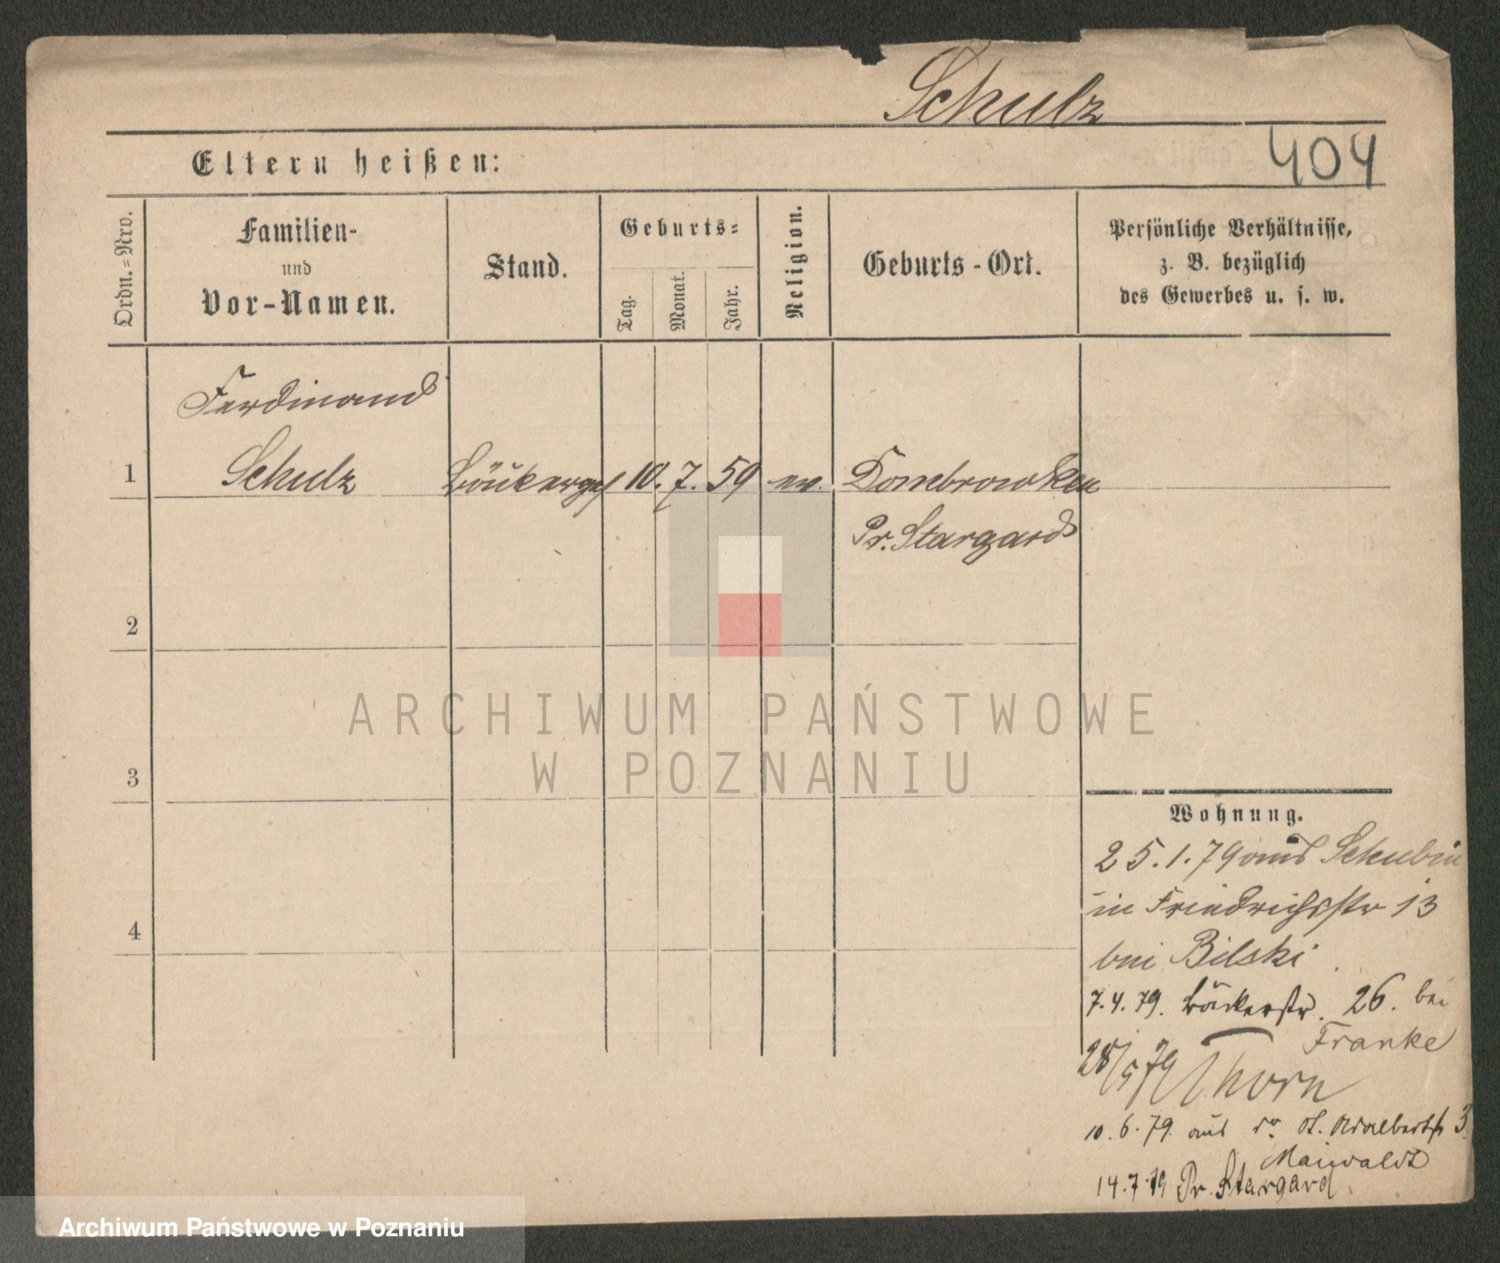 Schulz
404
Eltern heißen:
Ordn.=Nro.
Familien-
und
Vor-Namen.
Stand.
Geburts=
Tag.
Monat.
Jahr.
Religion.
Geburts-Ort.
Persönliche Verhältnisse,
z. B. bezüglich
des Gewerbes u. s. w.
Ferdinand
1 Schulz Bäckerges 10. 7. 59 ev. Dombrowken
Pr. Stargard
2
3
4
ARCHIWUM PAŃSTWOWE
W POZNANIU
Wohnung.
25.1.79 aus Schubin
in Friedrichsstr 13
bei Bilski
7.4.79. Bäckerstr. 26. bei
Franke
28/5 79 Thorn
10.6.79 aus do St. Adalbertstr 3
Maiwaldt
14.7.79 Pr. Stargard
Archiwum Państwowe w Poznaniu